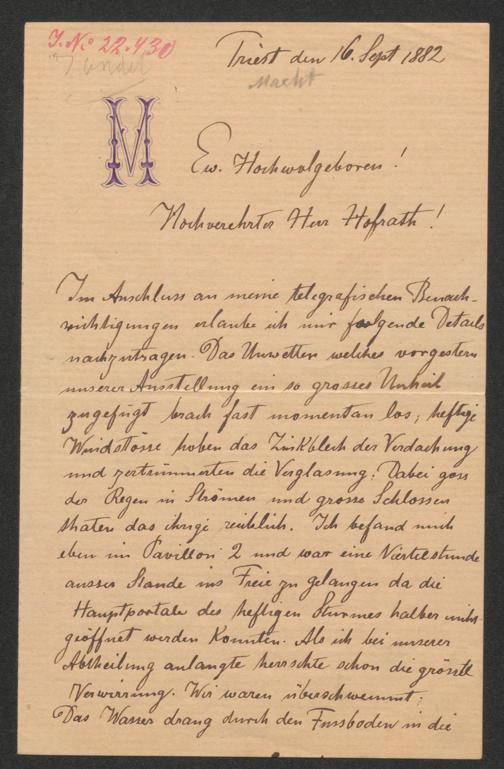 J. No 22.430
Triest den 16. Sept 1882
Macht
M
Ew. Hochwolgeboren!
Hochverehrter Herr Hofrath!
Im Anschluss an meine telegrafischen Benach-
richtigungen erlaube ich mir folgende Details
nachzutragen. Das Unwetter welches vorgestern
unserer Ausstellung ein so grosses Unheil
zugefügt brach fast momentan los, heftige
Windstösse hoben das Zinkblech der Verdachung
und zertrümmerten die Verglasung. Dabei goss
der Regen in Strömen und grosse Schlossen
thaten das ihrige redlich. Ich befand mich
eben im Pavillon 2 und war eine Viertelstunde
ausser Stande ins Freie zu gelangen da die
Hauptportale des heftigen Sturmes halber nicht
geöffnet werden konnten. Als ich bei unserer
Abtheilung anlangte herrschte schon die grösste
Verwirrung. Wir waren überschwemmt;
Das Wasser drang durch den Fussboden in die